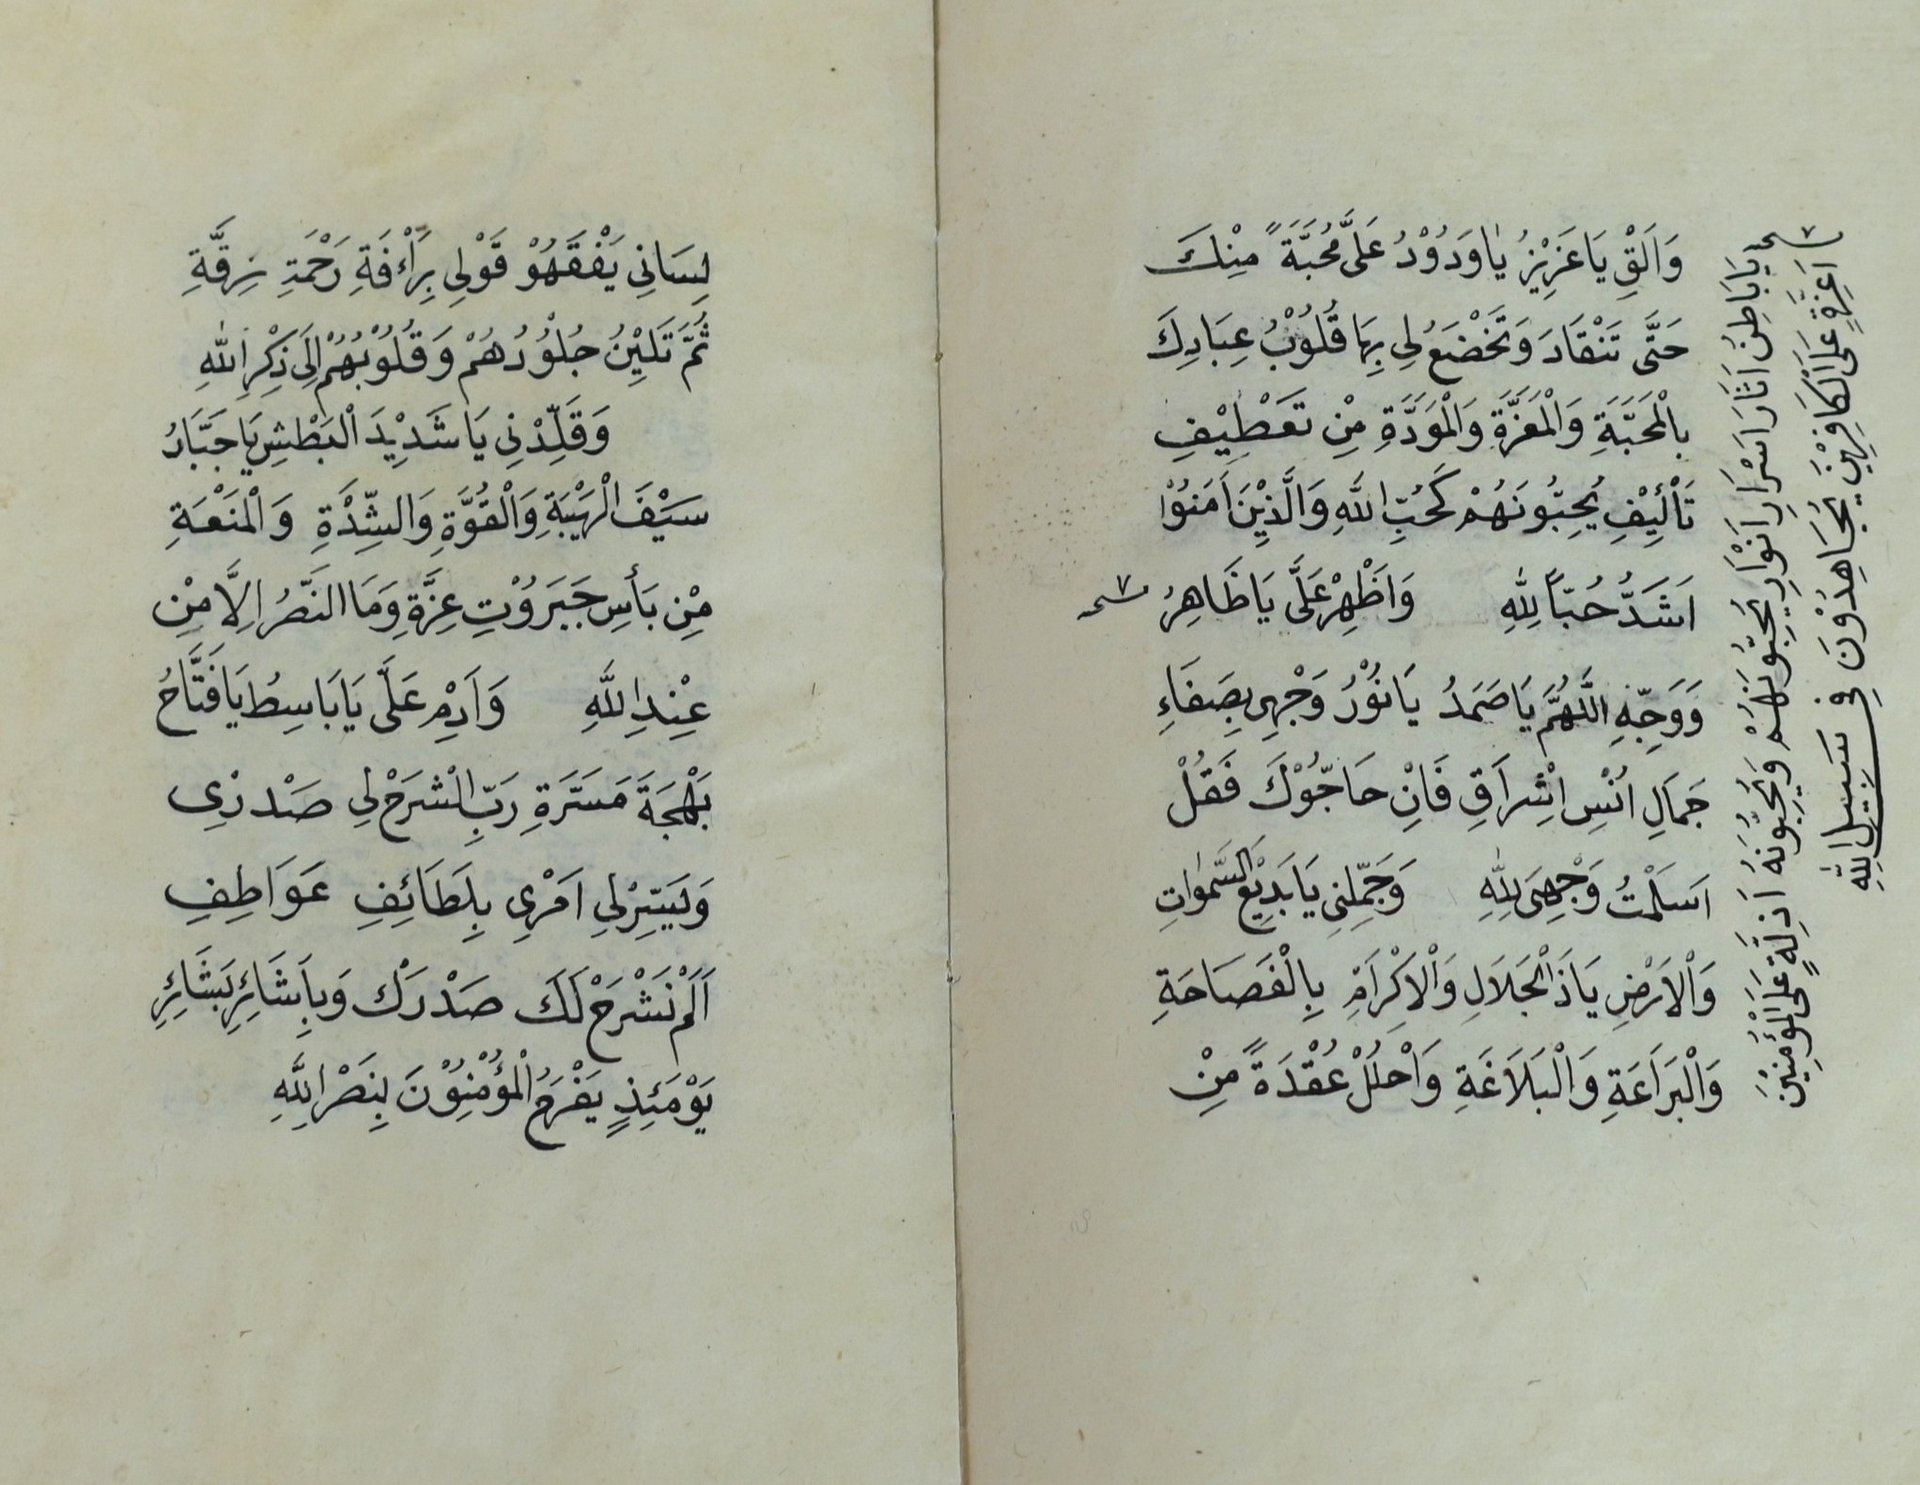 وَاَلْقِ يَا عَزِيْزُ يَا وَدُوْدُ عَلَىَّ مُحَبَّةً مِنْكَ
حَتّٰى تَنْقَادَ وَتَخْضَعُ لِى بِهَا قُلُوْبُ عِبَادِكَ
بِالْمَحَبَّةِ وَالْمَعَزَّةِ وَالْمَوَدَّةِ مِنْ تَعَطِيْفِ
تَأْلِيْفِ يُحِبُّونَهُمْ كَحُبِّ اللّٰهِ وَالَّذِيْنَ اَمَنُوْا
اَشَدُّ حُبّاً لِلّٰهِ وَاَظْهِرْ عَلَىَّ يَا ظَاهِرُ
وَوَجِّهِ اللّٰهُمَّ يَا صَمَدُ يَا نُوْرُ وَجْهِى بِصَفَاءِ
جَمَالِ اُنْسِ اِشْرَاقِ فَاِنْ حَاجُّوْكَ فَقُلْ
اَسْلَمْتُ وَجْهِىَ لِلّٰهِ وَجَمِّلْنِى يَا بَدِيْعَ السَّمٰوَاتِ
وَالْاَرْضِ يَا ذَا الْجَلَالِ وَالْاِكْرَامِ بِالْفَصَاحَةِ
وَالْبَرَاعَةِ وَالْبَلَاغَةِ وَاحْلُلْ عُقْدَةً مِنْ
يَا بَاطِنُ اَثَارَ اَسْرَارِ اَنْوَارِ يُحِبُّونَهُمْ وَيُحِبُّونَهُ اَذِلَّةٍ عَلَى الْمُؤْمِنِيْنَ
اَعِزَّةٍ عَلَى الْكَافِرِيْنَ يُجَاهِدُوْنَ فِى سَبِيْلِ اللّٰهِ
لِسَانِى يَفْقَهُوْ قَوْلِى بِرَأْفَةِ رَحْمَةِ رِقَّةِ
ثُمَّ تَلِيْنُ جُلُوْدُهُمْ وَقُلُوْبُهُمْ اِلَى ذِكْرِ اللّٰهِ
وَقَلِّدْنِى يَا شَدِيْدَ الْبَطْشِ يَا جَبَّارُ
سَيْفَ الْهَيْبَةِ وَالْقُوَّةِ وَالشِّدَّةِ وَالْمَنْعَةِ
مِنْ بَأْسِ جَبَرُوْتِ عِزَّةِ وَمَا النَّصْرُ اِلَّا مِنْ
عِنْدِ اللّٰهِ وَاَدِمْ عَلَىَّ يَا بَاسِطُ يَا فَتَّاحُ
بَهْجَةَ مَسَرَّةِ رَبِّ اشْرَحْ لِى صَدْرِى
وَيَسِّرْ لِى اَمْرِى بِلَطَائِفِ عَوَاطِفِ
اَلَمْ نَشْرَحْ لَكَ صَدْرَكَ وَبِاَشَائِرِ بَشَائِرِ
يَوْمَئِذٍ يَفْرَحُ الْمُؤْمِنُوْنَ بِنَصْرِ اللّٰهِ